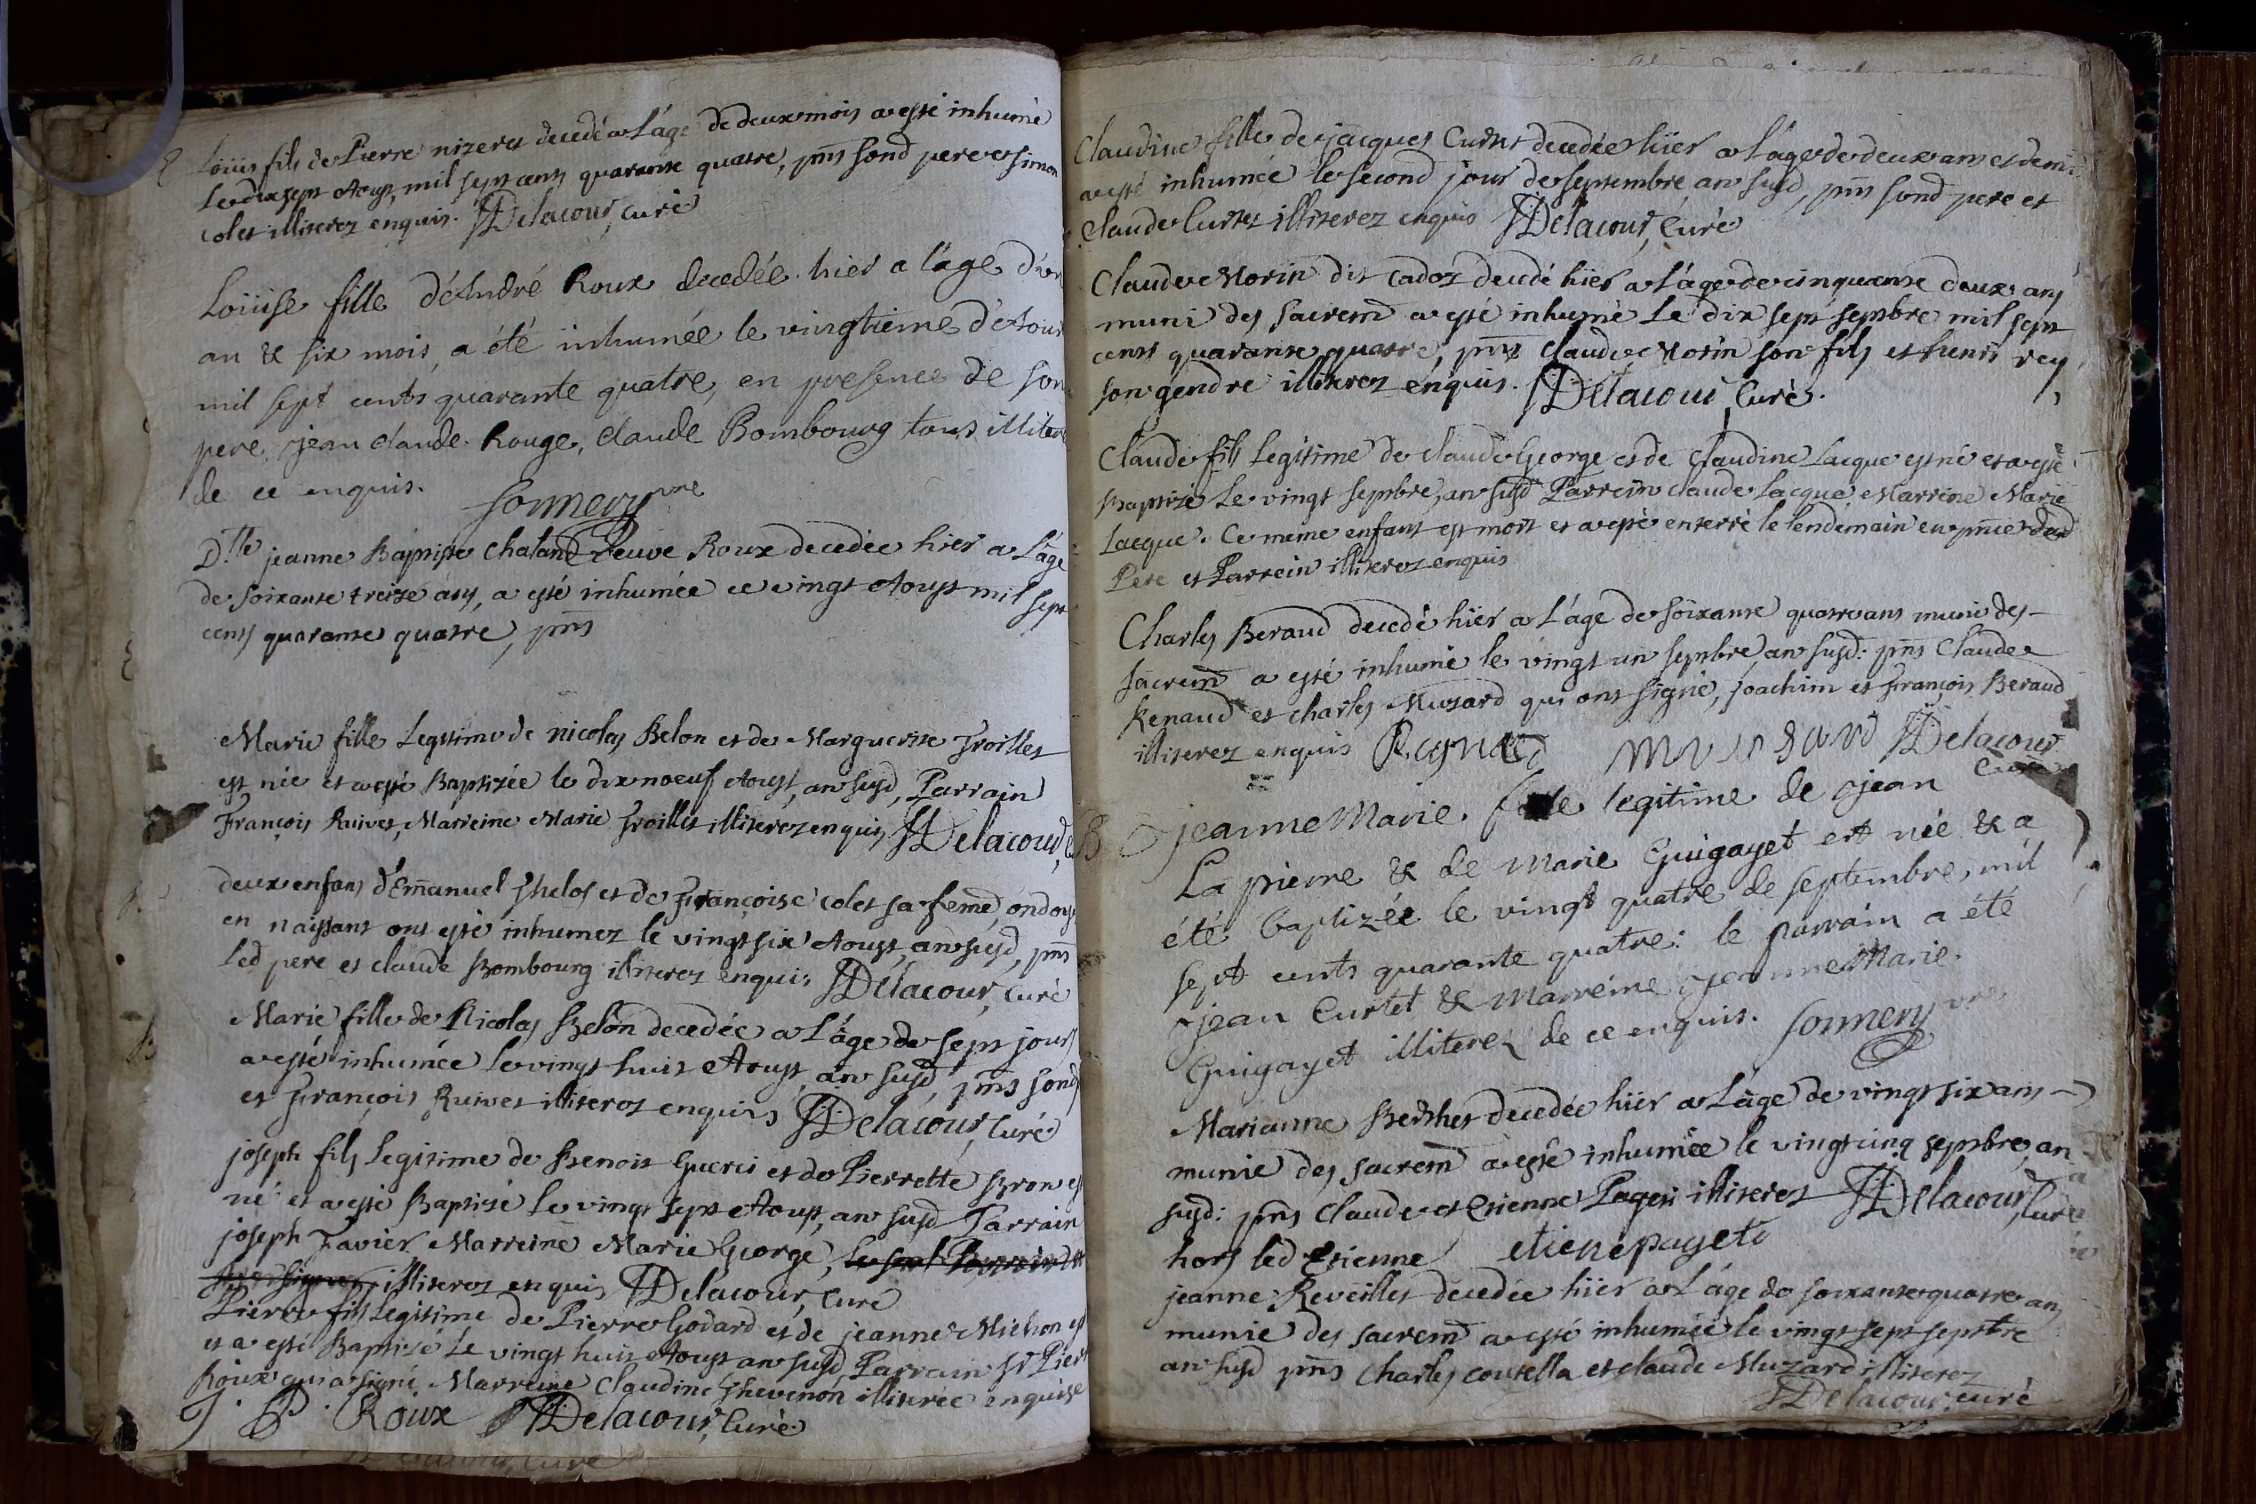 Loüis fils de Pierre nizeret decedé a L'age de deux mois a esté inhumé
Le dix sept Aoust, mil sept cents quarante quatre, pnts sond pere et simon
colet illiterez enquis. JDelacour, curé
Loüise fille d'André Roux decedée hier a l'age d'un
an & six mois, a été inhumée le vingtieme d'Aout
mil sept cents quarante quatre, en presence de son
pere, jean claude Rouge, claude Bombourg tous illiter
de ce enquis. Sonnery vre
D.lle jeanne Baptiste Chaland Veuve Roux decedée hier a L'age
de soixante treize ans, a esté inhumée ce vingt Aoust mil sept
cents quarante quatre, pnts
Marie fille Legitime de nicolas Belon et de Marguerite Troillet
est née et a esté Baptizée le dix noeuf Aoust, an susd, Parrain
François Ruivet, Marreine Marie Troillet illiterez enquis JDelacour,
deux enfans d'Emanuel et de Françoise colet sa feme, ondoyé
en naissant ont esté inhumez le vingt six Aoust, an susd, pnts
Led pere et claude Bombourg illiterez enquis JDelacour, curé
Marie fille de Nicolas Belon decedée a L'age de sept jours
a esté inhumée le vingt huit Aoust, an susd, pnts sond
et François Ruivet illiterez enquis JDelacour, curé
joseph fils legitime de Benoit Guerci et de Pierrette Bron est
né et a esté Baptisé Le vingt sept Aoust, an susd Parrain
joseph Favier Marreine Marie George,
illiterez enquis JDelacour, curé
Pierre fils legitime de Pierre Godard et de jeanne Michon est
et a esté Baptisé Le vingt huit Aoust an susd Parrain Sr Pierr
Roux qui a signé, Marreine Claudine Thevenon illiterée enquise
J. P. Roux JDelacour, Curé
Claudine fille de jacques Curtet decedée hier a L'age de deux ans et demi
a esté inhumée le second jour de septembre an susd, pnts sond pere et
Claude Curtet illiterez enquis JDelacour, Curé
Claude Morin dit Cadoz decedé hier a L'age de cinquante deux ans
muni des sacremt a esté inhumé Le dix sept sepbre mil sept
cents quarante quatre, pnts Claude Morin son fils et henri rey
son gendre illiterez enquis. JDelacour, Curé.
Claude fils Legitime de Claude George et de Claudine Lacque est né et a esté
Baptizé Le vingt sepbre, an susd Parrein claude Lacque Marreine Marie
Lacque. Ce meme enfant est mort et a esté enterré le lendemain en pnce dud
Pere et Parrein illiterez enquis
Charles Beraud decedé hier a L'age de soixante quatre ans muni des
sacremt a esté inhumé le vingt un sepbre an susd: pnts Claude
Renaud et charles Muzard qui ont signé, joachim et François Beraud
illiterez enquis Reynaud muzard JDelacour
Curé
jeanne Marie. fille legitime de jean
La pierre & de Marie Guigayet est née & a
été baptizée le vingt quatre de septembre, mil
sept cents quarante quatre: le parrain a été
jean Curtet & Marreine jeanne Marie
Guigayet illiterez de ce enquis. Sonnery vre
Marianne Berthet decedée hier a L'age de vingt six ans
munie des sacremt a esté inhumée le vingt cinq sepbre an
susd: pnts Claude et Etienne Paget illiterez JDelacour, Curé
hors led Etienne etiene payet
jeanne Reveillet decedée hier a L'age de soixante quatre ans
munie des sacremt a esté inhumée le vingt sept septbre
an susd pnts Charles coutella et claude Muzard illiterez
JDelacour, curé